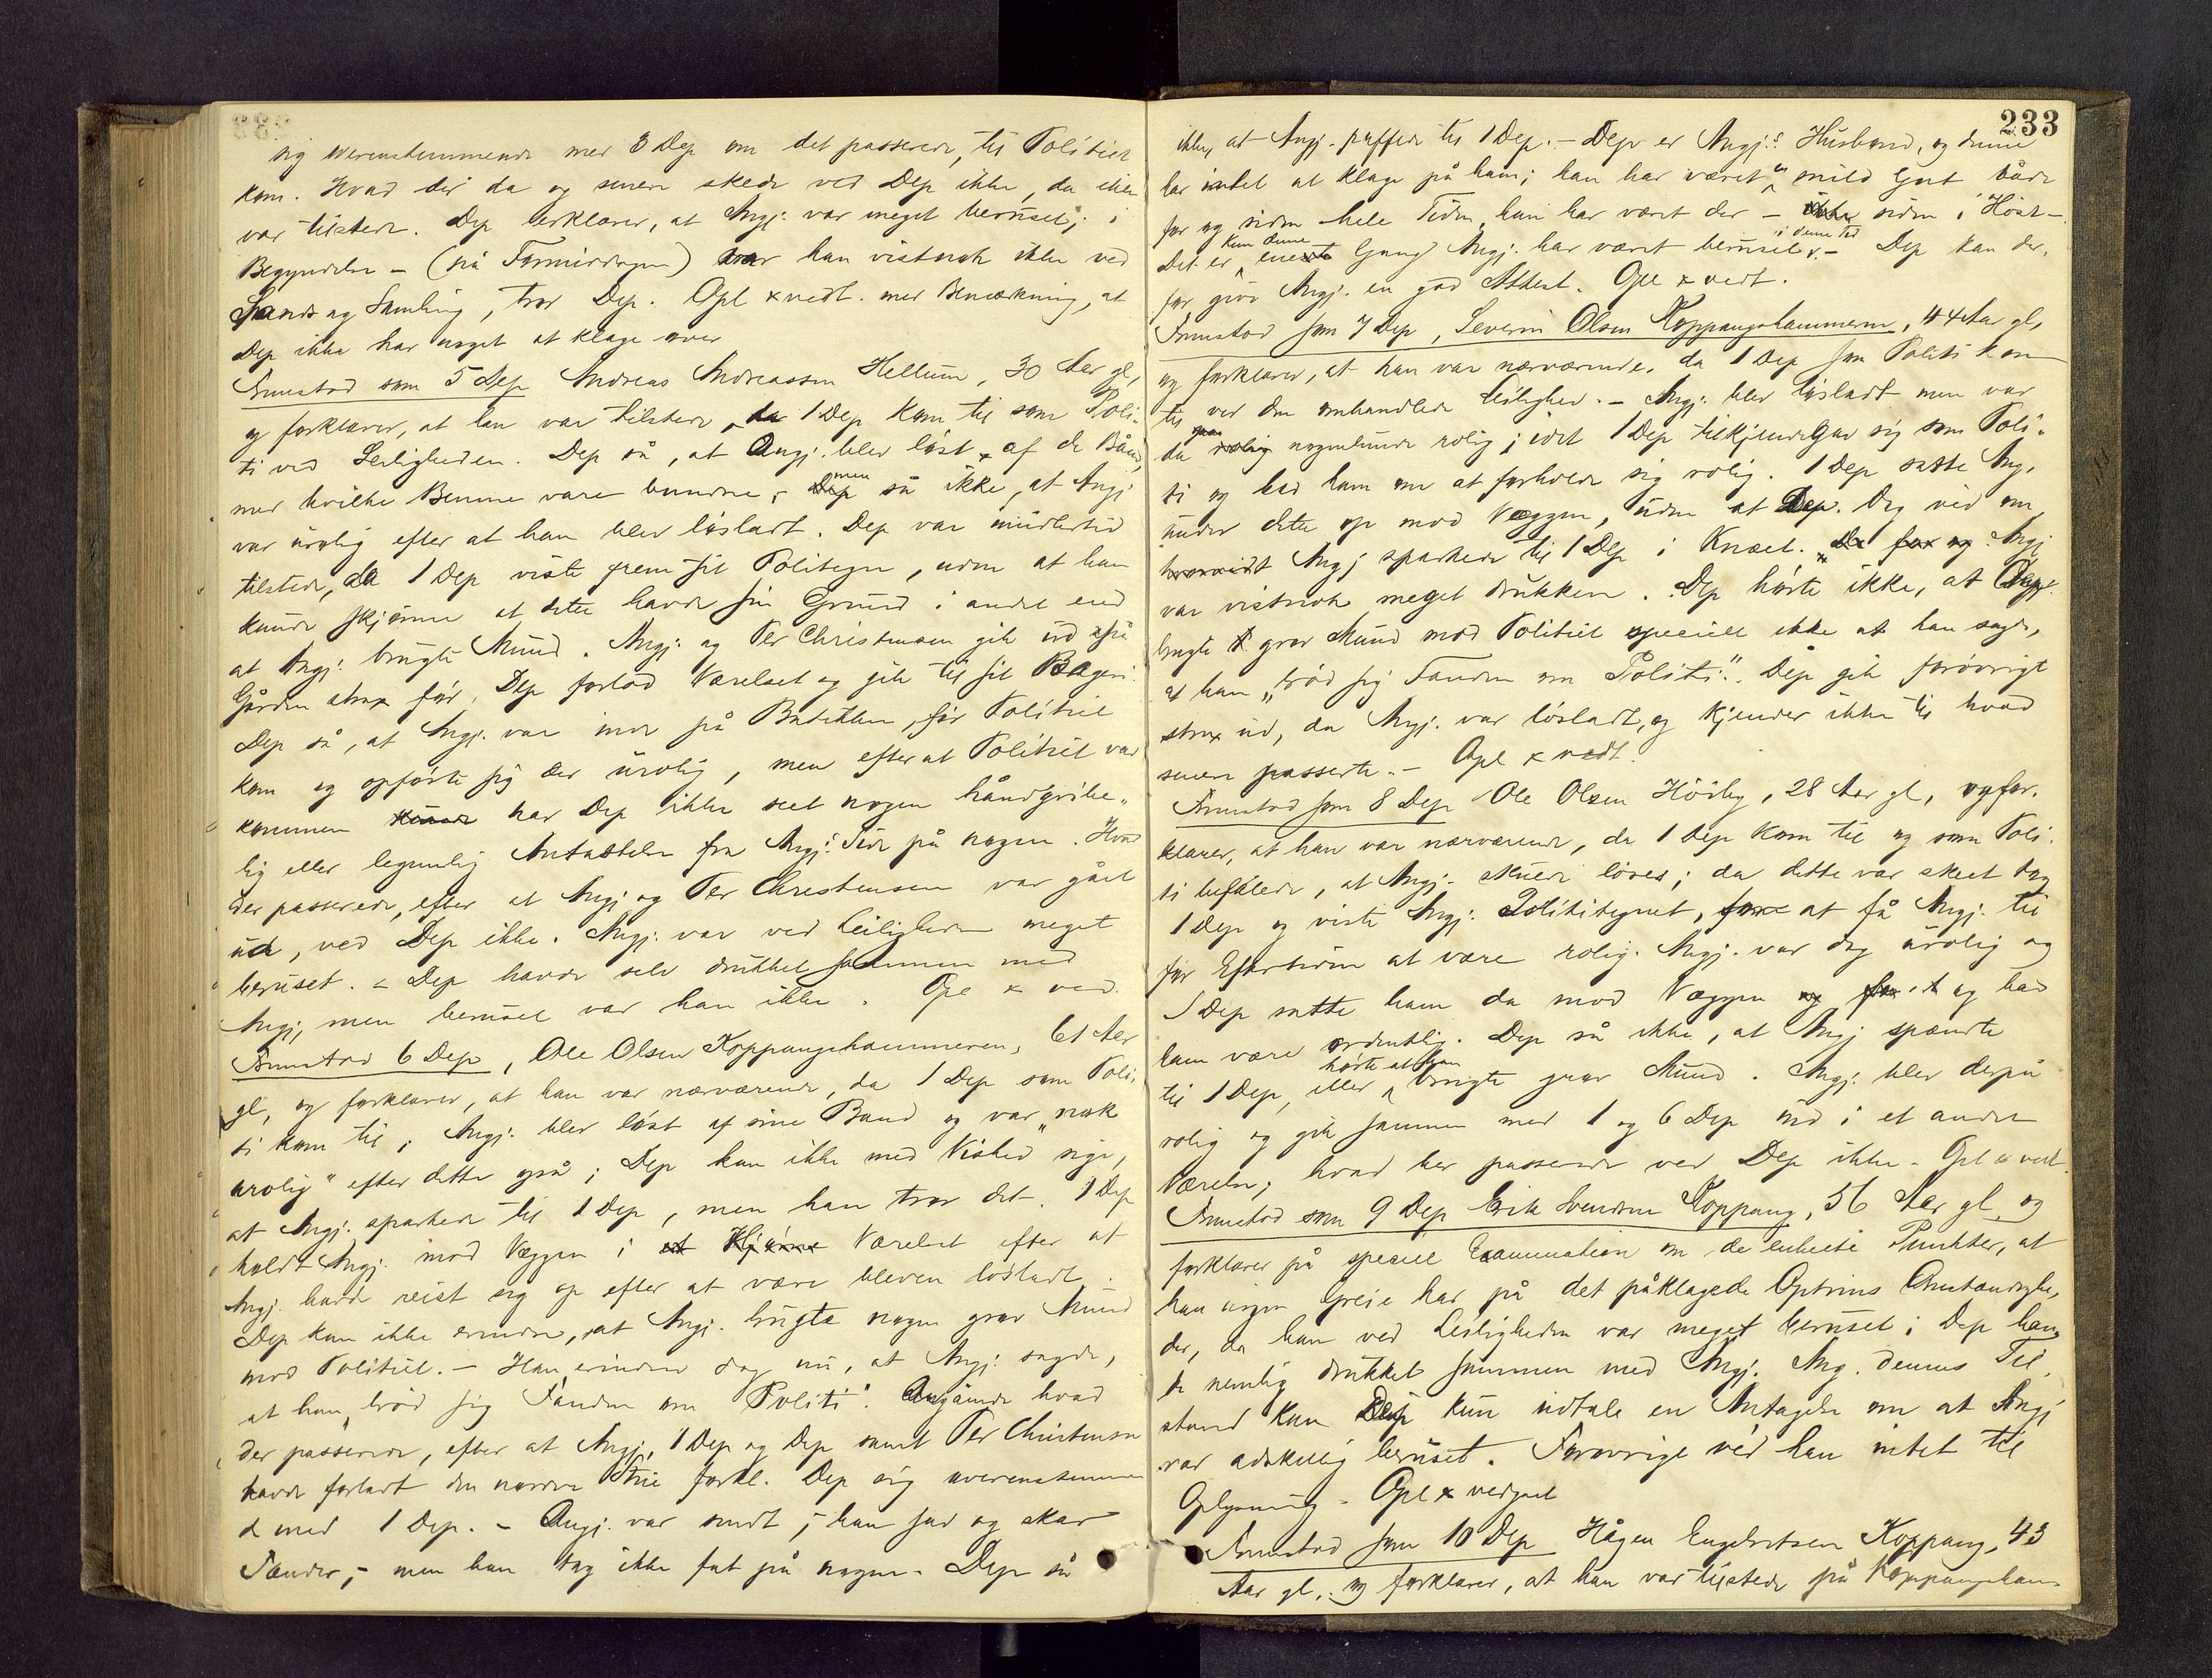 sig overenstemmende med 3 Dep om det passerede, til Politiet
kom. Hvad der da og senere skede ved Dep ikke, da ikke
var tilstede. Dep erklærer, at Angj. var meget beruset; i
Begyndelsen – (på Formiddagen) var han vistnok ikke ved
Sands og Samling, tror Dep. Opl x vedt. med Bemærkning, at
Dep ikke har noget at klage over
Fremstod som 5 Dep Andreas Andreassen Hellum, 30 Aar gl,
og forklarer, at han var tilstede, da 1 Dep kom til som Poli-
ti ved Leiligheden. Dep så, at Angj. blev løst x af de Bånd,
med hvilke Benene vare bundne, men så ikke, at Angj
var urolig efter at han blev løsladt. Dep var imidlertid
tilstede, da 1 Dep viste frem sit Politegn, uden at han
kunde skjønne at dette havde sin Grund i andet end
at Angj. brugte Mund. Angj. og Per Christensen gik ud på
Gården strax før, Dep forlod Værelset og gik til sit Bageri.
Dep så, at Angj. var inde på Butikken, før Politiet
kom og opførte sig der urolig, men efter at Politiet var
kommen har Dep ikke seet nogen håndgribe-
lig eller legemlig Antastelse fra Angj.s Side på nogen. Hvad
der passerede, efter at Angj og Per Christensen var gået
ud, ved Dep ikke. Angj. var ved Leiligheden meget
beruset. – Dep havde selv drukket sammen med
Angj, men beruset var han ikke. Opl x ved.
Fremstod 6 Dep, Ole Olsen Koppangshammeren, 61 Aar
gl, og forklarer, at han var nærværende, da 1 Dep som Poli-
ti kom til; Angj. blev løst af sine Baand og var „nok
urolig" efter dette også; Dep kan ikke med Vished sige,
at Angj. sparkede til 1 Dep, men han tror det. 1 Dep
holdt Angj. mod Væggen i et Hjørne Værelset efter at
Angj. havde reist sig op efter at være bleven løsladt.
Dep kan ikke erindre, at Angj. brugte nogen grov Mund
mod Politiet. – Han erindrer dog nu, at Angj. sagde,
at han „brød sig Fanden om Politi". Angående hvad
der passerede, efter at Angj, 1 Dep og Dep samt Per Christensen
havde forladt den nordre Stue forkl. Dep sig overenstemmen
d med 1 Dep. – Angj. var sendt; han sad og skar
Tænder; – men han tog ikke fat på nogen. – Dep så
233
ikke, at Angj. puffede til 1 Dep. – Dep er Angj.s Husbond, og denne
har intet at klage på ham; han har været en snild Gut både
før og siden hele Tiden, han har været der – siden i Høst –
kun denne i denne Tid
Det er eneste Gang Angj. har været beruset. – Dep kan der-
for give Angj. en god Attest. Opl x vedt.
Fremstod som 7 Dep, Severin Olsen Koppangshammeren, 44 Aar gl,
og forklarer, at han var nærværende, da 1 Dep som Politi kom
til ved den omhandlede Leilighed. – Angj. blev løsladt men var
da nogenlunde rolig; idet 1 Dep tilkjendegav sig som Poli-
ti og bad ham om at forholde sig rolig. 1 Dep satte Ang.
under dette op mod Væggen, uden at Dep. dog ved om
hvorvidt Angj sparkede til 1 Dep i Knæet. Angj
var vistnok meget drukken. Dep hørte ikke, at Angj.
brugte grov Mund mod Politiet specielt ikke at han sagde,
at han „brød sig Fanden om Politi". Dep gik forøvrigt
strax ud, da Angj. var løsladt, og kjender ikke til hvad
senere passerte. – Opl x vedt.
Fremstod som 8 Dep Ole Olsen Høiby, 28 Aar gl, og for-
klarer, at han var nærværende, da 1 Dep kom til og som Poli-
ti befalede, at Angj. skulde løses; da dette var skeet tog
1 Dep og viste Angj. Polititegnet, for at få Angj. til
for Eftertiden at være rolig. Angj. var dog urolig og
1 Dep satte ham da mod Væggen og bad
ham være ordentlig. Dep så ikke, at Angj spændte
hørte at han
til 1 Dep, eller brugte grov Mund. Angj. blev derpå
rolig og gik sammen med 1 og 6 Dep ud i et andet
Værelse; hvad her passerede ved Dep ikke. Opl x vedt.
Fremstod som 9 Dep Erik Svendsen Koppang, 56 Aar gl og
forklarer på speciel Examination om de enkelte Punkter, at
han ingen Greie har på det påklagede Optrins Omstændighe-
der, da han ved Leiligheden var meget beruset; Dep hav-
de nemlig drukket sammen med Angj. Ang. dennes Til-
stand kan Dep kun udtale en Antagelse om at Angj
var adskillig beruset. Forøvrigt véd han intet til
Oplysning. Opl x vedtaet
Fremstod som 10 Dep Hågen Engebretsen Koppang, 43
Aar gl, og forklarer, at han var tilstede på Koppangsham-